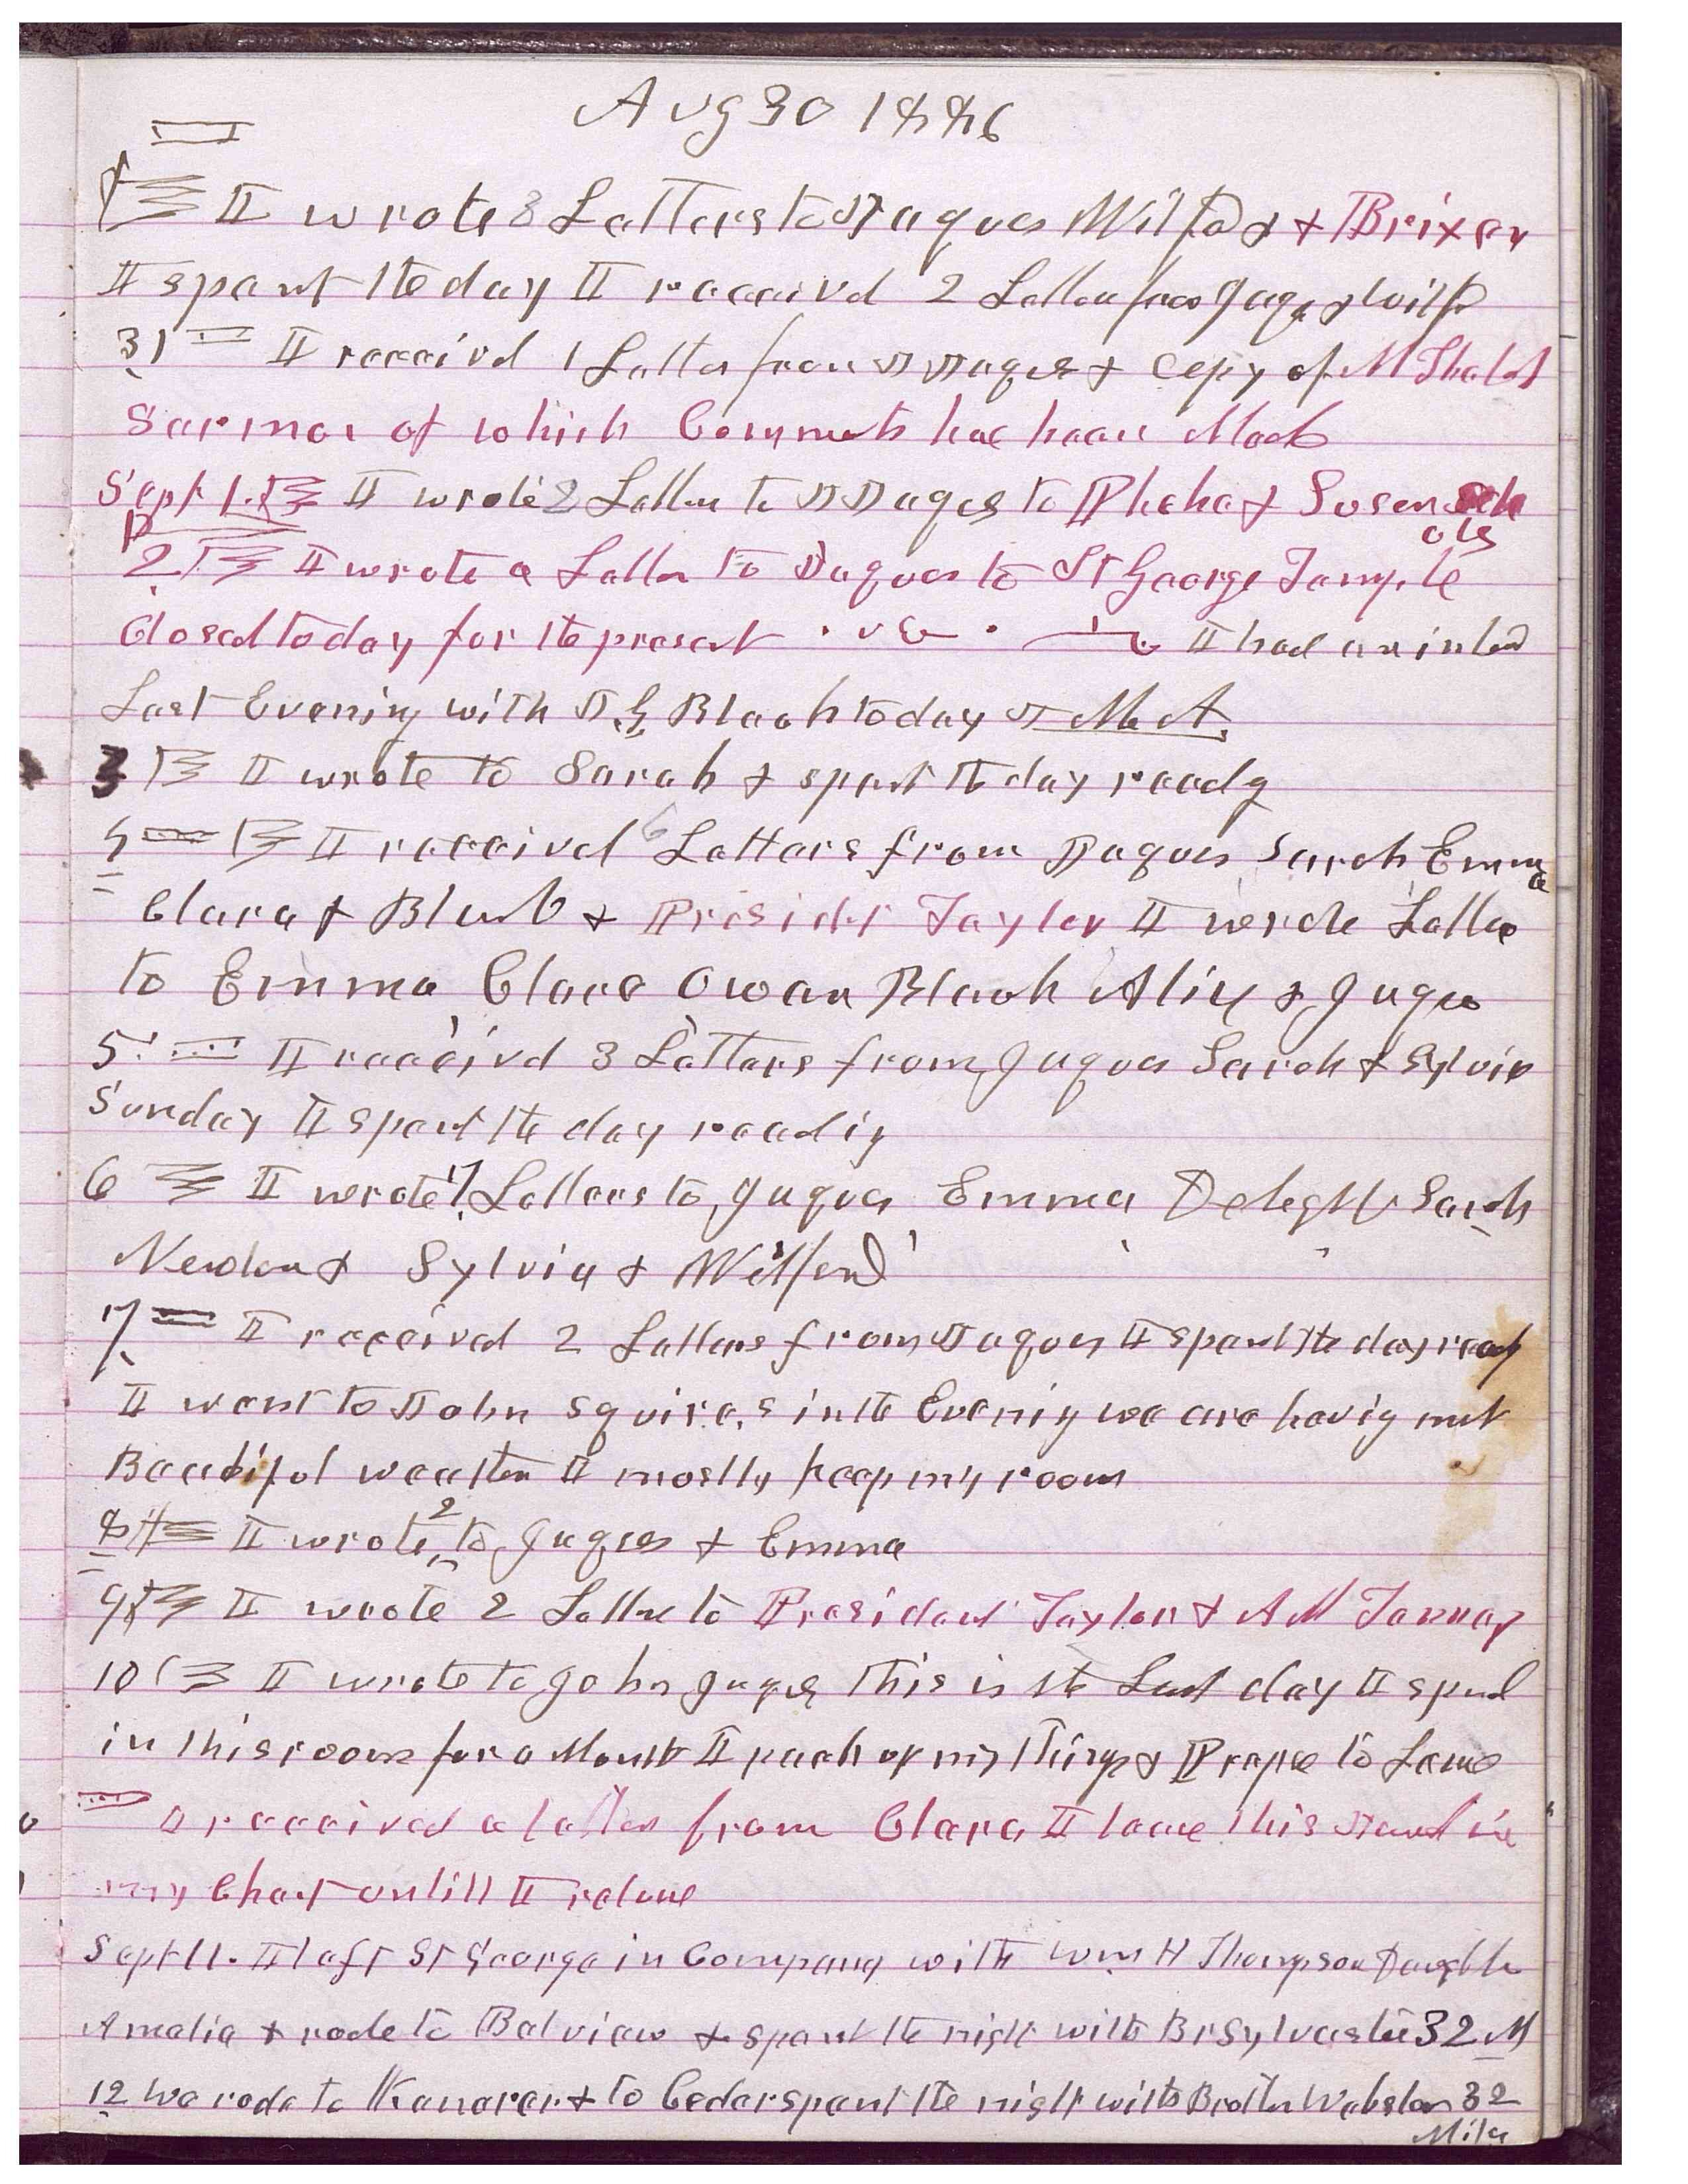 Aug 30 1886
I wrote 3 Letters to Jaques Wilford & Brixen
I spent the day I received 2 Letters from Jaques & Wilford
31 I received 1 Letter from J Jaques & Copy of M
Sermon of which Comments has been Made
Sept 1. I wrote 2 Letters to J Jaques to Phebe & Susan
2 I wrote a Letter to Jaques to St George Temple
Closed today for the present I had an
Last Evening with Black today
3 I wrote to Sarah & spent the day readg
4 I received 6 Letters from Jaques Sarah Emma
Clara & & Presidet Taylor I wrote Letters
to Emma Clara Owen Black & Jaques
5 I received 3 Letters from Jaques Sarah & Sylvia
Sunday I spent the day readig
6 I wrote 7 Letters to Jaques Emma Delight Sarah
Newton & Sylvia & Wilford
7 I received 2 Letters from Jaques I spent the day
I went to John Squires in the Evenig we are havig
Beautiful weather I mostly keep my room
8 I wrote 2 to Jaques & Emma
9 I wrote 2 Letters to President Taylor & A M
10 I wrote to John Jaques This is the Last day I spend
in this room for a Month I pack up my Things & to Leave
I received a letter from Clara I leave this in
my Chest untill I return
Sept 11. I left St George in Company with Wm H Thompson Daughter
Amelia & rode to Belview & spent the night with Br Sylvester 32 M
12 We rode to Kanarer & to Cedar spent the night with Brother Webster 32
Miles